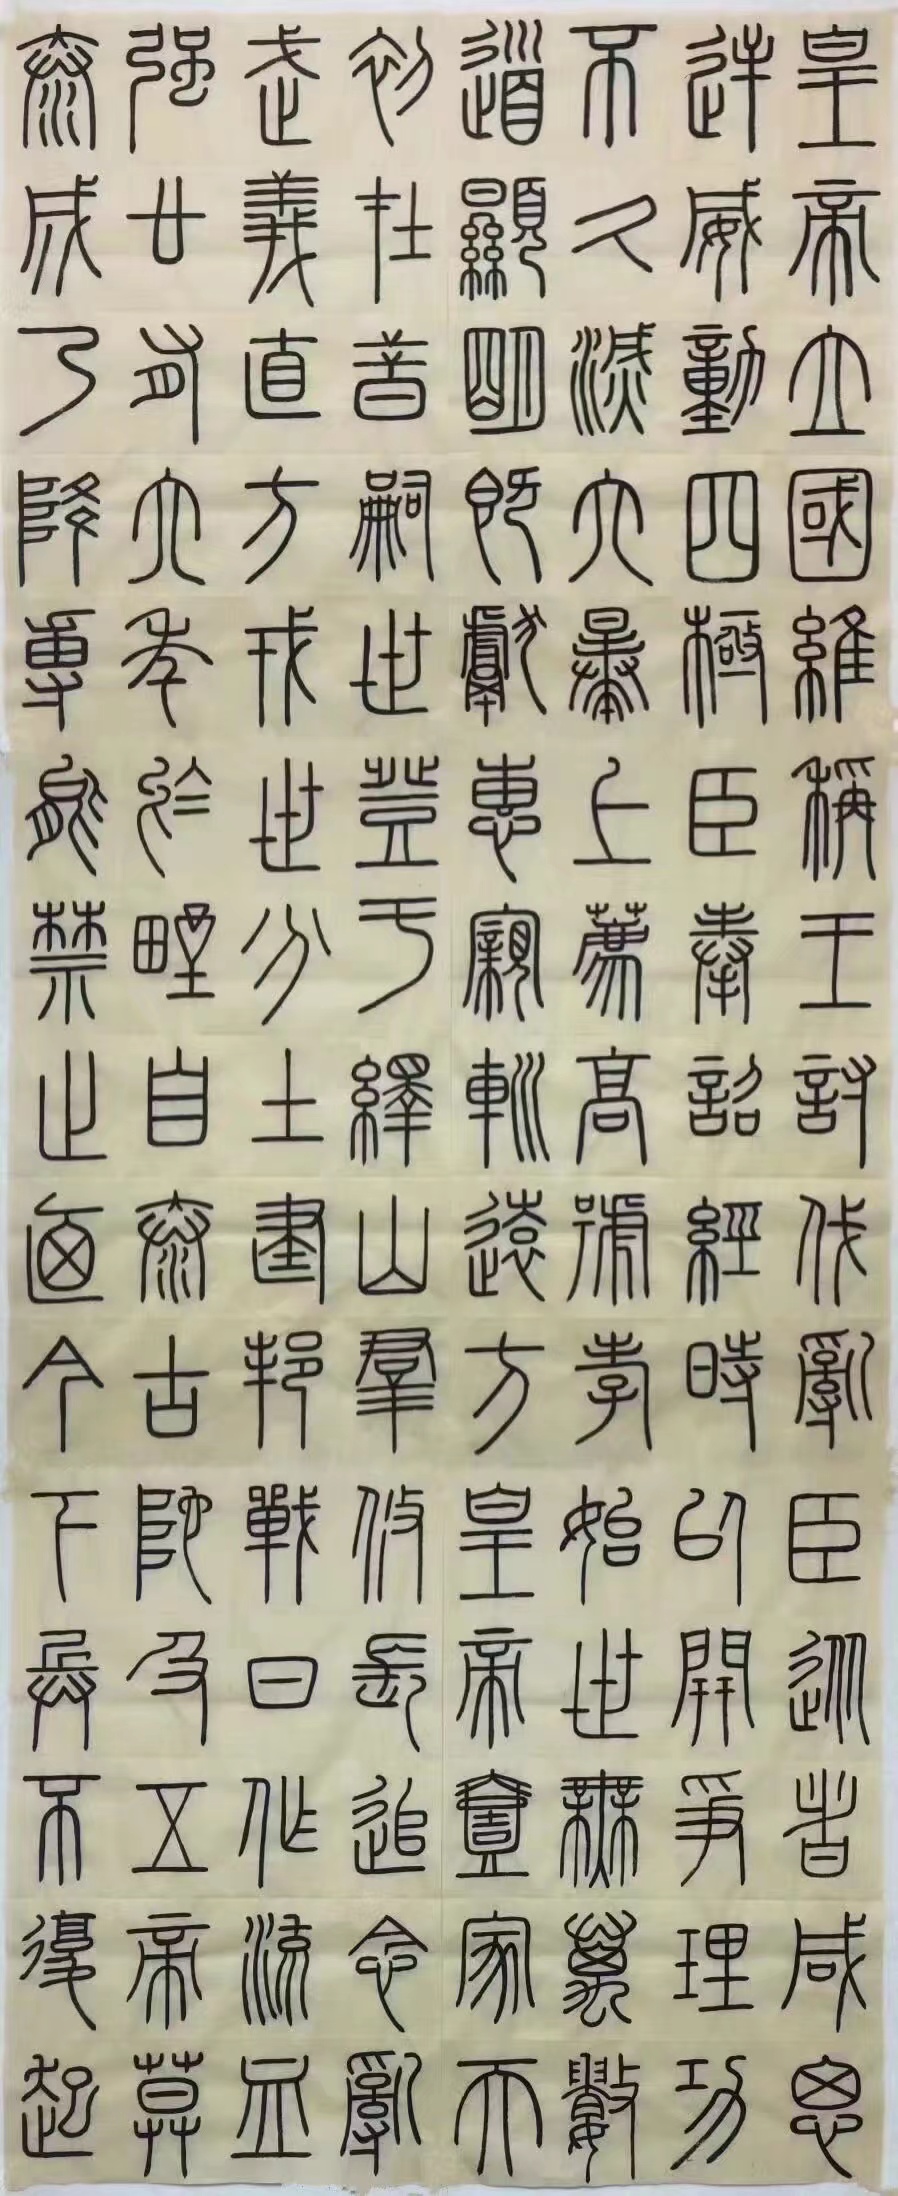 皇帝立國維稱王討伐亂臣從者咸思
逆威動四極臣奉詔經時以開爭理功
不久滅六暴上薦高號孝始世無萬數
道顯明既獻惠親巡遠方皇帝壹家天
初在昔嗣世登于繹山群攸長追念亂
武義直方戎世分土建邦戰日作流血
強廿有六年於野自泰古陀及五帝莫
泰成乃降專能禁止迺今下兵不復起